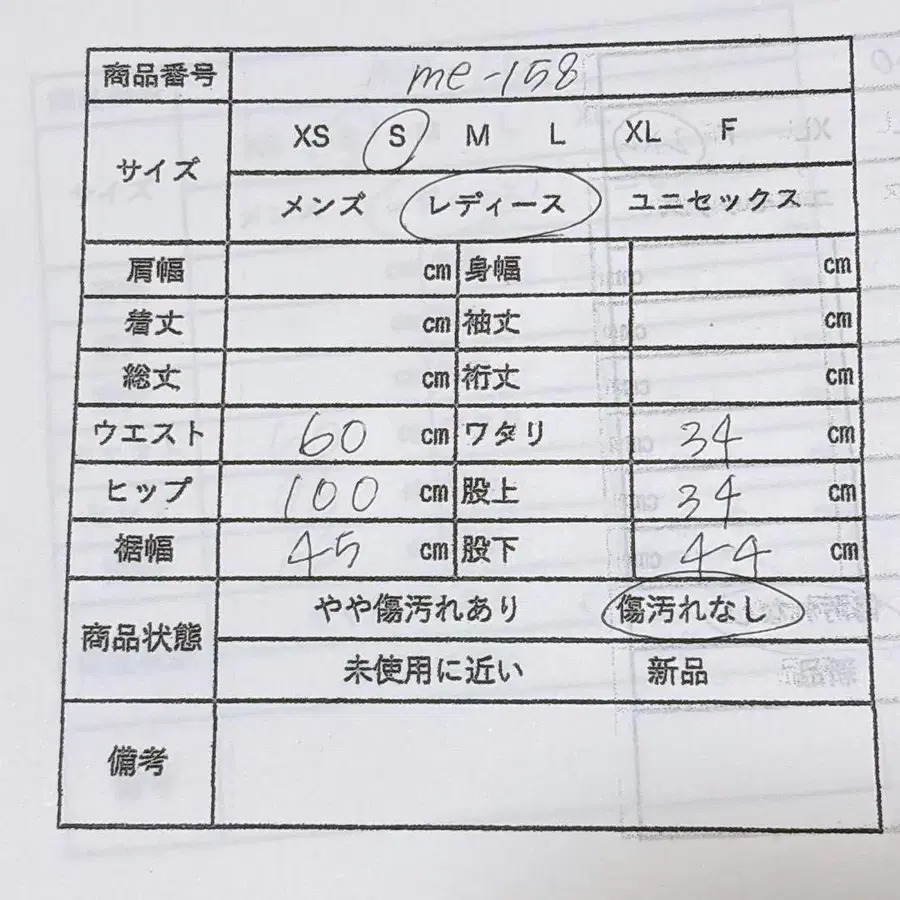 商品番号 me-158
サイズ XS S M L XL F
メンズ レディース ユニセックス
肩幅 cm 身幅 cm
着丈 cm 袖丈 cm
総丈 cm 裄丈 cm
ウエスト 60 cm ワタリ 34 cm
ヒップ 100 cm 股上 34 cm
裾幅 45 cm 股下 44 cm
商品状態 やや傷汚れあり 傷汚れなし
未使用に近い 新品
備考